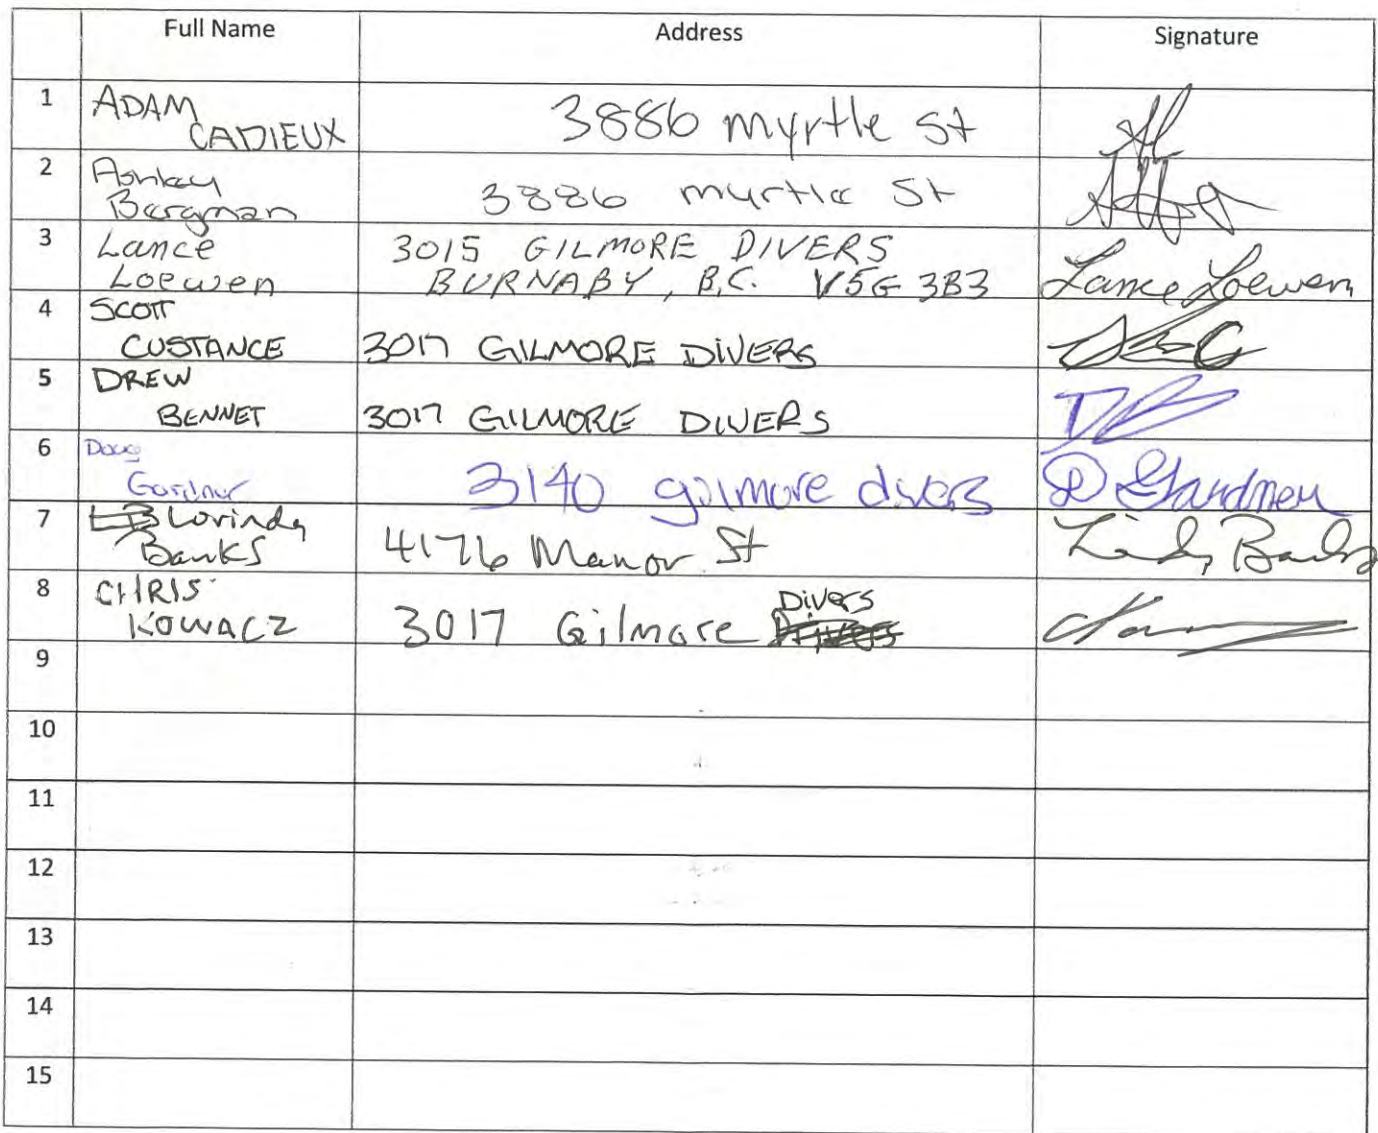 Full Name Address Signature
1 ADAM
CADIEUX 3886 myrtle St
2 Ashley
Bergman 3886 myrtle St
3 Lance
Loewen 3015 GILMORE DIVERS
BURNABY, B.C. V5G 3B3 Lance Loewen
4 SCOTT
CUSTANCE 3017 GILMORE DIVERS
5 DREW
BENNET 3017 GILMORE DIVERS DB
6 Doug
Gardner 3140 gilmore divers D Gardner
7 Lorinda
Banks 4176 Manor St
8 CHRIS
KOWACZ 3017 Gilmore Divers
9
10
11
12
13
14
15